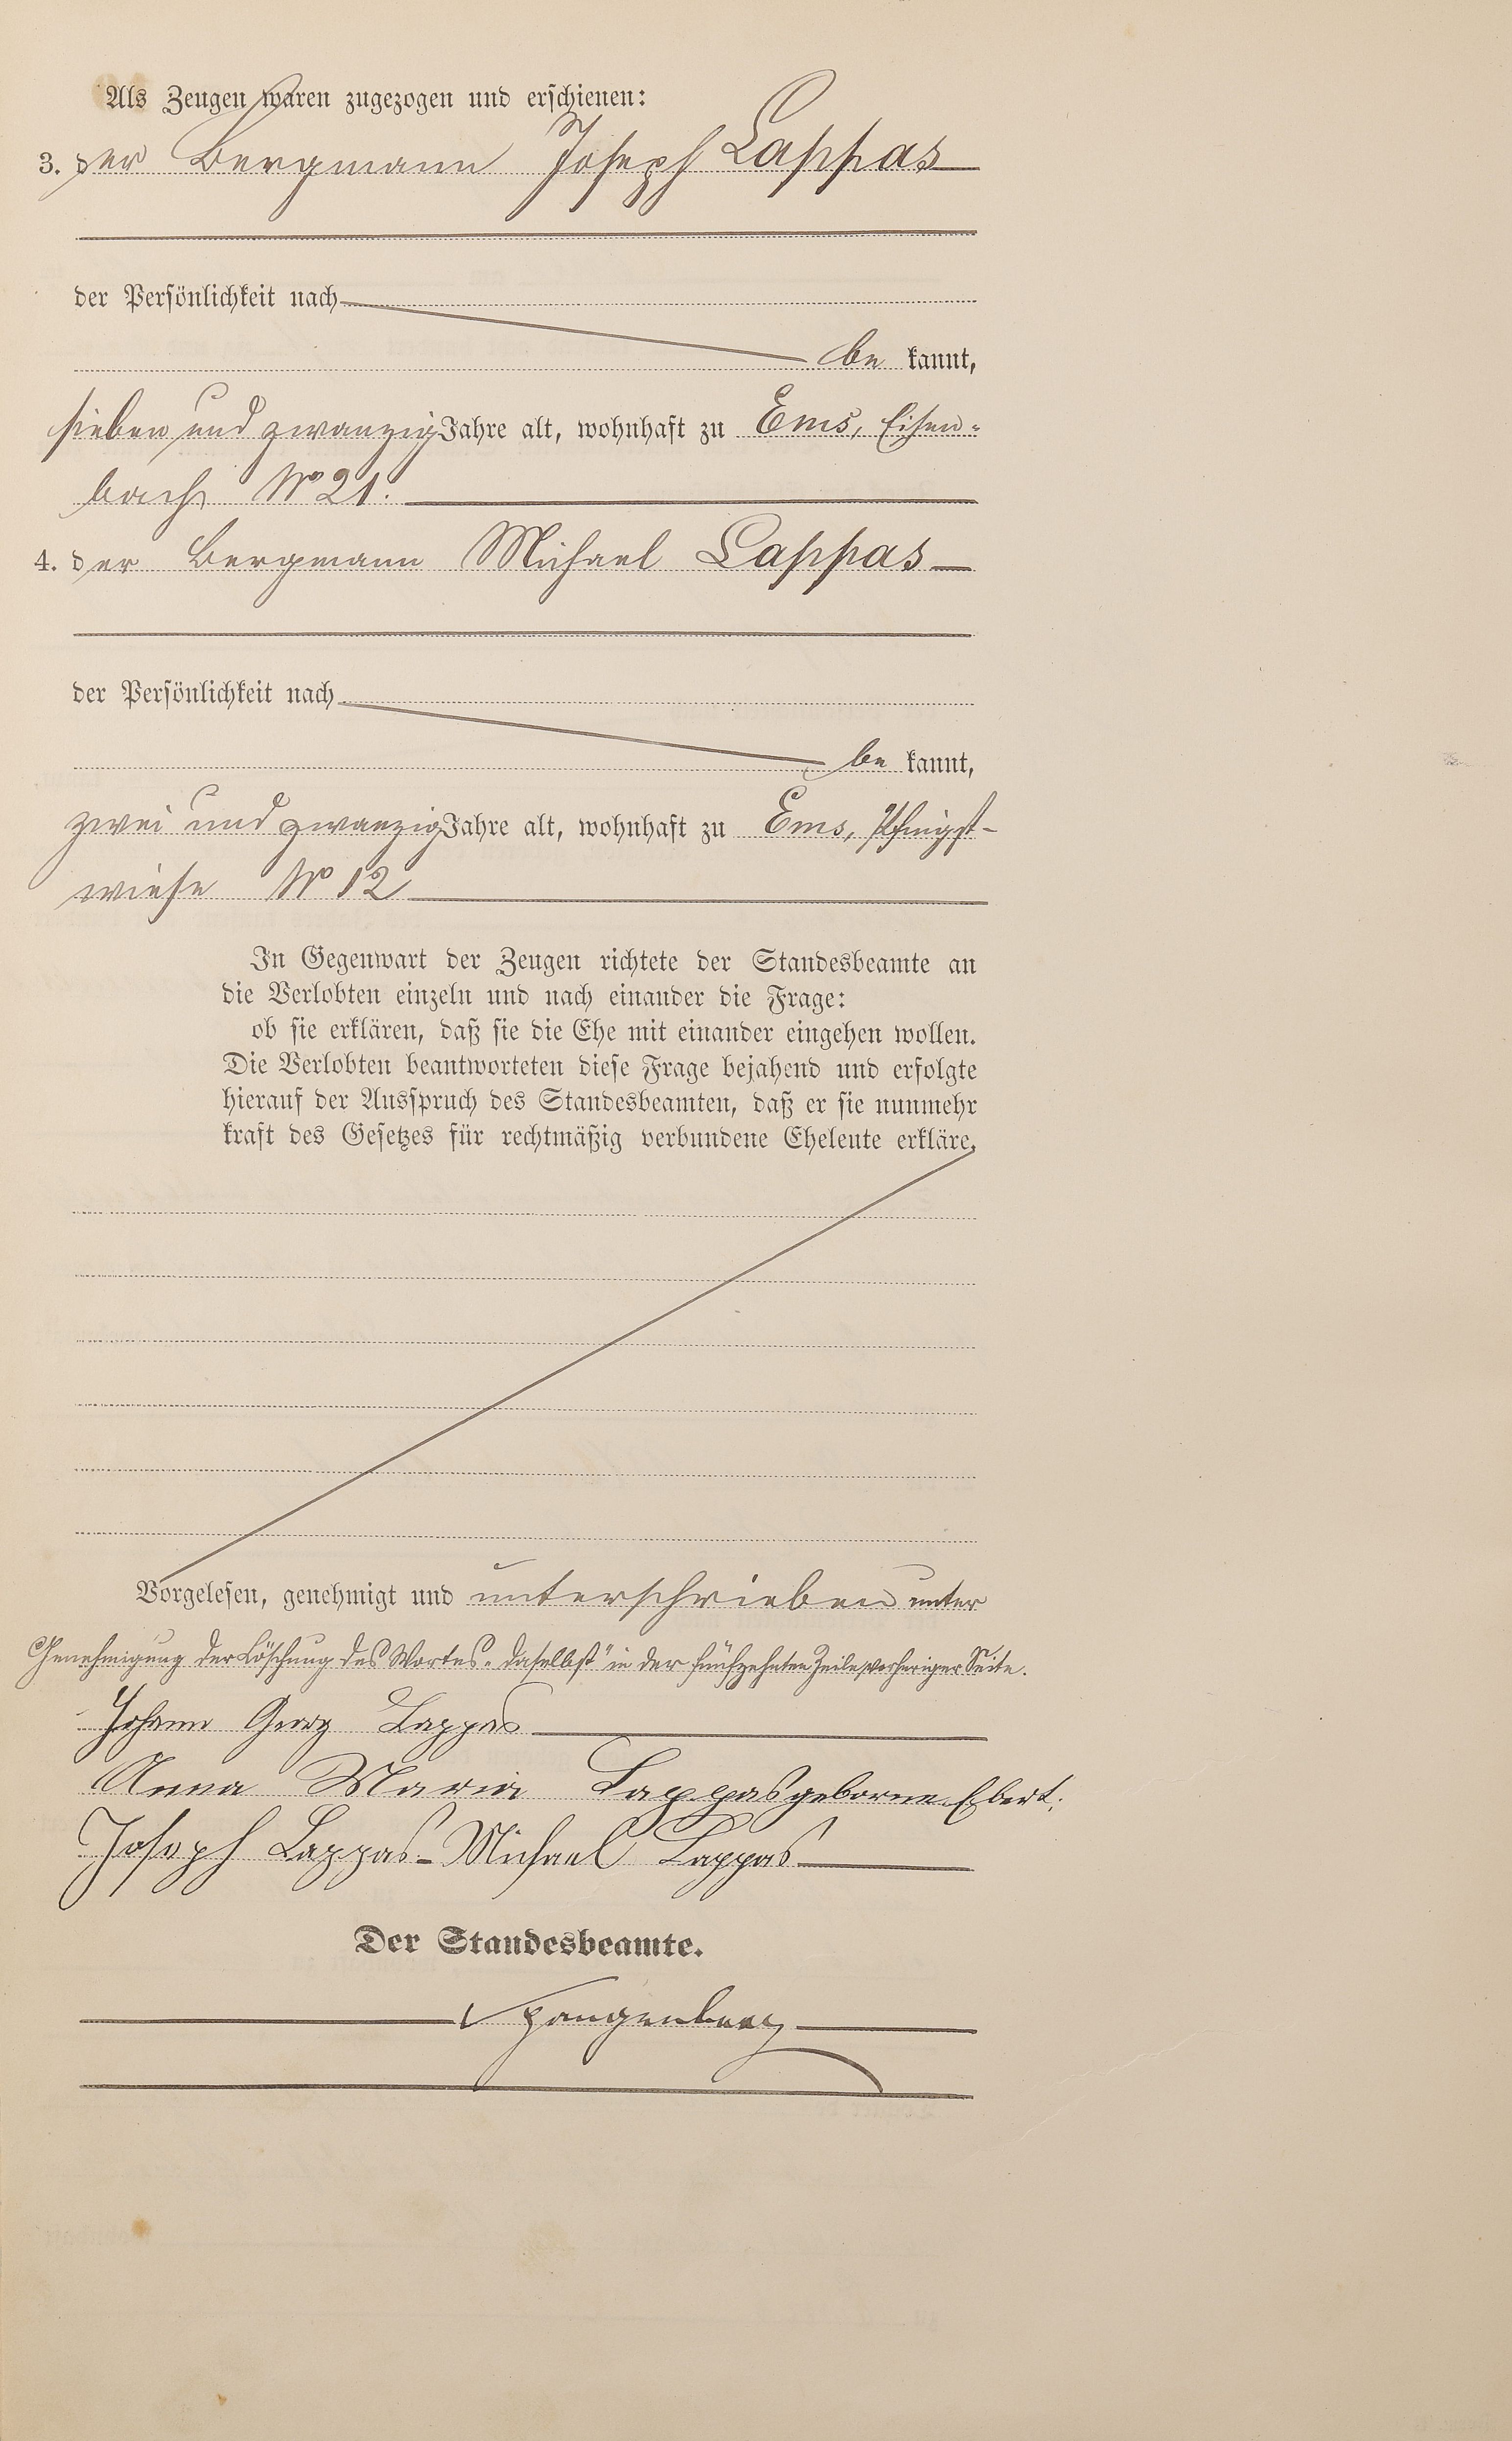 Als Zeugen waren zugezogen und erschienen:
3. der Bergmann Joseph Lappas
der Persönlichkeit nach
be kannt,
sieben und zwanzig Jahre alt, wohnhaft zu Ems, Eisen-
bach No 21.
4. der Bergmann Michael Lappas
der Persönlichkeit nach
be kannt,
zwei und zwanzig Jahre alt, wohnhaft zu Ems, Pfingst-
wiese No 12
In Gegenwart der Zeugen richtete der Standesbeamte an
die Verlobten einzeln und nach einander die Frage:
ob sie erklären, daß sie die Ehe mit einander eingehen wollen.
Die Verlobten beantworteten diese Frage bejahend und erfolgte
hierauf der Ausspruch des Standesbeamten, daß er sie nunmehr
kraft des Gesetzes für rechtmäßig verbundene Eheleute erkläre.
Vorgelesen, genehmigt und unterschrieben unter
Genehmigung der Löschung des Wortes „daselbst" in der fünfzehnten Zeile vorheriger Seite.
Johann Georg Lappas
Anna Maria Lappas geborene Ebert.
Joseph Lappas - Michael Lappas
Der Standesbeamte.
Spangenberg